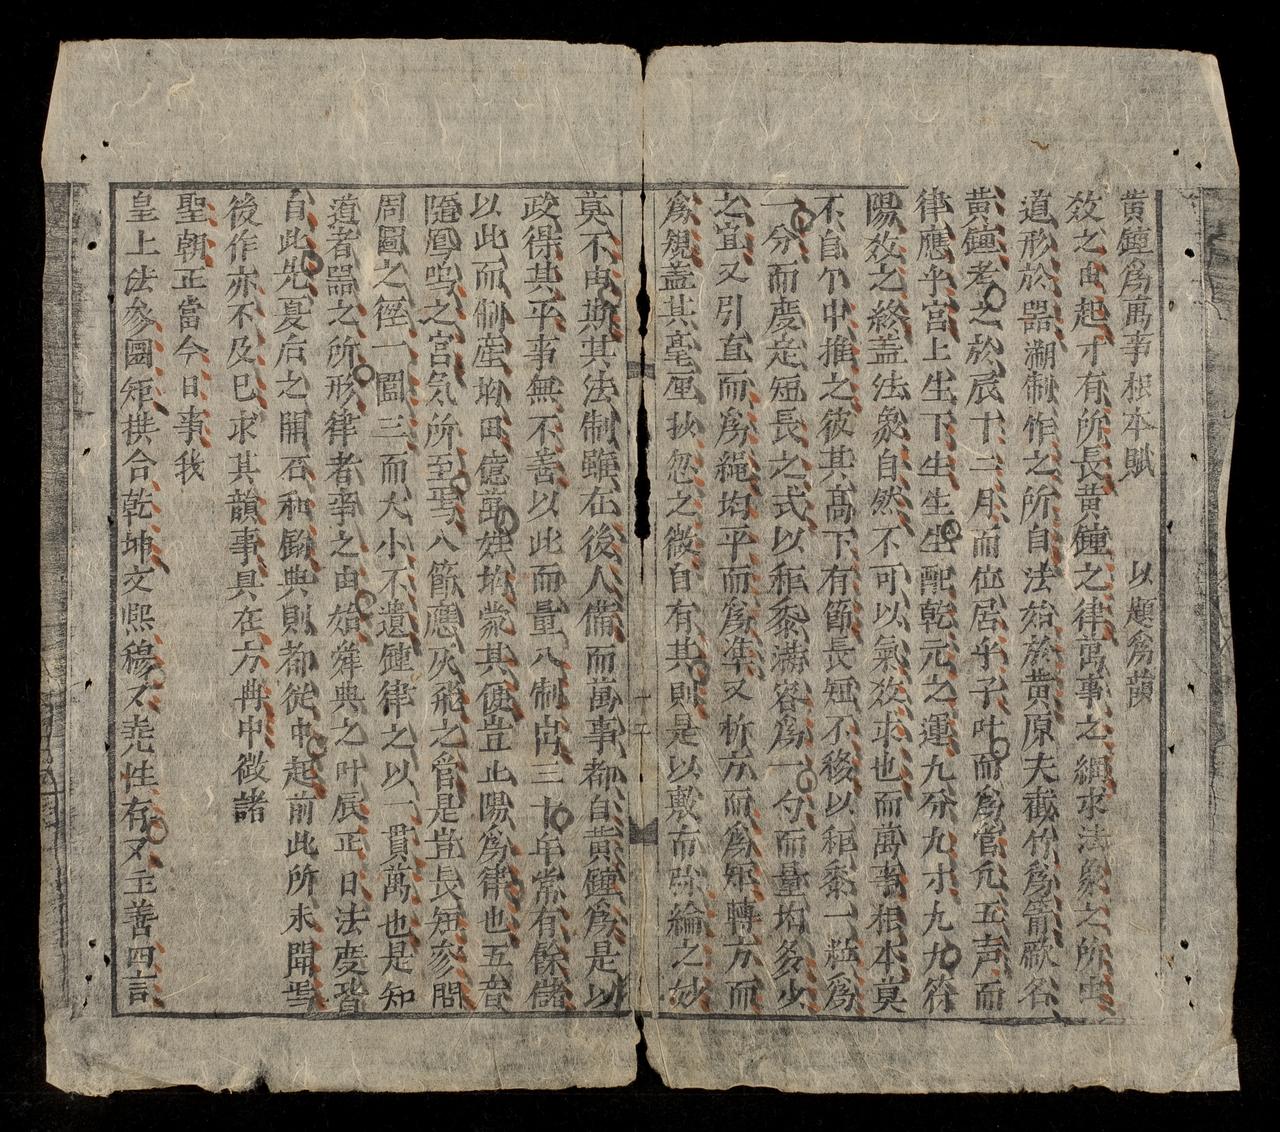 黄鍾爲萬事根本賦 以題爲韻
效之由起才有所長黄鍾之律萬事之綱求法象之所由
道形於器溯制作之所自法始於黄原夫截竹爲筩厥名
黄鍾考之於辰十二月而位居乎子叶而爲管冠五声而
律應乎宮上生下生生生配乾元之運九分九寸九九符
陽爻之終盖法象自然不可以氣效求也而萬事根本莫
不自个中推之彼其高下有節長短不移以秬黍一粒爲
一分而度定短長之式以秬黍满容爲一勺而量均多少
之宜又引直而爲繩均平而爲准又析方而爲矩轉方而
爲規盖其毫厘抄忽之微自有其則是以敷而弥綸之妙
莫不由斯其法制雖在後人備而萬事都自黄鍾爲是以
政得其平事無不善以此而量八制古三十年常有餘儲
以此而側産均田億萬姓均蒙其便豈止陽爲律也五音
隨鳯鳴之宮気所至焉八節應灰飛之管是豈長短參問
周圍之徑一圍三而大小不遺鍾律之以一貫萬也是知
道者器之所形律者事之由始舜典之叶辰正日法度皆
自此先夏后之開石和鈞典則都從中起前此所未聞焉
後作亦不及已求其韻事具在方冊中徴諸
聖朝正當今日事我
皇上法參圎矩拱合乾坤文熙穆不尭性有又主善四言
十五